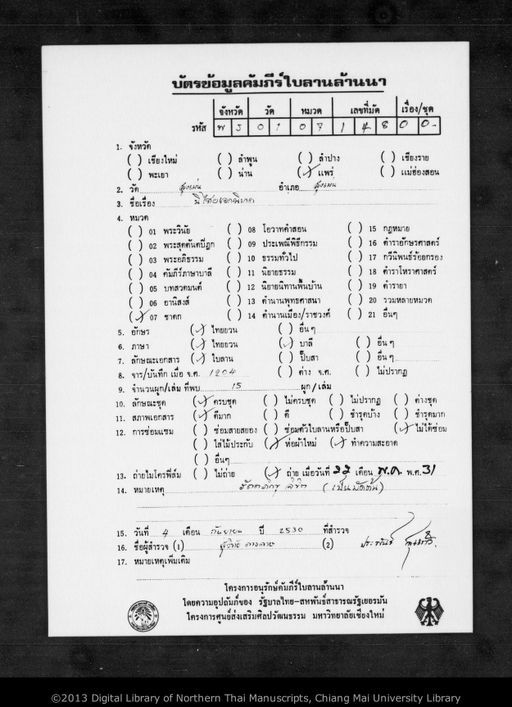 บัตรข้อมูลคัมภีร์ใบลานล้านนา
จังหวัด วัด หมวด เลขที่มัด เรื่อง/ชุด
รหัส พ ร 0 1 0 7 1 4 8 0 0-
1. จังหวัด
( ) เชียงใหม่ ( ) ลำพูน ( ) ลำปาง ( ) เชียงราย
( ) พะเยา ( ) น่าน (✓) แพร่ ( ) แม่ฮ่องสอน
2. วัด สูงเม่น อำเภอ สูงเม่น
3. ชื่อเรื่อง
4. หมวด
( ) 01 พระวินัย ( ) 08 โอวาทคำสอน ( ) 15 กฎหมาย
( ) 02 พระสุตตันตปิฎก ( ) 09 ประเพณีพิธีกรรม ( ) 16 ตำราอักษรศาสตร์
( ) 03 พระอภิธรรม ( ) 10 ธรรมทั่วไป ( ) 17 กวีนิพนธ์ร้อยกรอง
( ) 04 คัมภีร์ภาษาบาลี ( ) 11 นิยายธรรม ( ) 18 ตำราโหราศาสตร์
( ) 05 บทสวดมนต์ ( ) 12 นิยายนิทานพื้นบ้าน ( ) 19 ตำรายา
( ) 06 อานิสงส์ ( ) 13 ตำนานพุทธศาสนา ( ) 20 รวมหลายหมวด
(✓) 07 ชาดก ( ) 14 ตำนานเมือง/ราชวงศ์ ( ) 21 อื่นๆ
5. อักษร (✓) ไทยยวน ( ) อื่นๆ
6. ภาษา (✓) ไทยยวน (✓) บาลี ( ) อื่นๆ
7. ลักษณะเอกสาร (✓) ใบลาน ( ) ปั๊บสา ( ) อื่นๆ
8. จาร/บันทึก เมื่อ จ.ศ. 1204 ( ) ต่าง จ.ศ. ( ) ไม่ปรากฏ
9. จำนวนผูก/เล่ม ที่พบ 15 ผูก/เล่ม
10. ลักษณะชุด (✓) ครบชุด ( ) ไม่ครบชุด ( ) ไม่ปรากฏ ( ) ต่างชุด
11. สภาพเอกสาร (✓) ดีมาก ( ) ดี ( ) ชำรุดบ้าง ( ) ชำรุดมาก
12. การซ่อมแซม ( ) ซ่อมสายสยอง ( ) ซ่อมตัวใบลานหรือปั๊บสา (✓) ไม่ได้ซ่อม
( ) ใส่ไม้ประกับ (✓) ห่อผ้าใหม่ (✓) ทำความสะอาด
( ) อื่นๆ
13. ถ่ายไมโครฟิล์ม ( ) ไม่ถ่าย (✓) ถ่าย เมื่อวันที่ 22 เดือน พ.ค. พ.ศ. 31
14. หมายเหตุ (เป็นมัดต้น)
15. วันที่ 4 เดือน กันยายน ปี 2530 ที่สำรวจ
16. ชื่อผู้สำรวจ (1) (2)
17. หมายเหตุเพิ่มเติม
โครงการอนุรักษ์คัมภีร์ใบลานล้านนา
โดยความอุปถัมภ์ของ รัฐบาลไทย-สหพันธ์สาธารณรัฐเยอรมัน
โครงการศูนย์ส่งเสริมศิลปวัฒนธรรม มหาวิทยาลัยเชียงใหม่
©2013 Digital Library of Northern Thai Manuscripts, Chiang Mai University Library